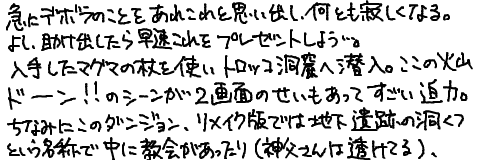 急にデボラのことをあれこれと思い出し、何とも寂しくなる。
よし、助け出したら早速これをプレゼントしよう…。
入手したマグマの杖を使い、トロッコ洞窟へ潜入。ここの火山
ドーン!!のシーンが2画面のせいもあってすごい迫力。
ちなみにこのダンジョン、リメイク版では地下遺跡の洞くつ
という名称で中に教会があったり(神父さんは透けてる)、